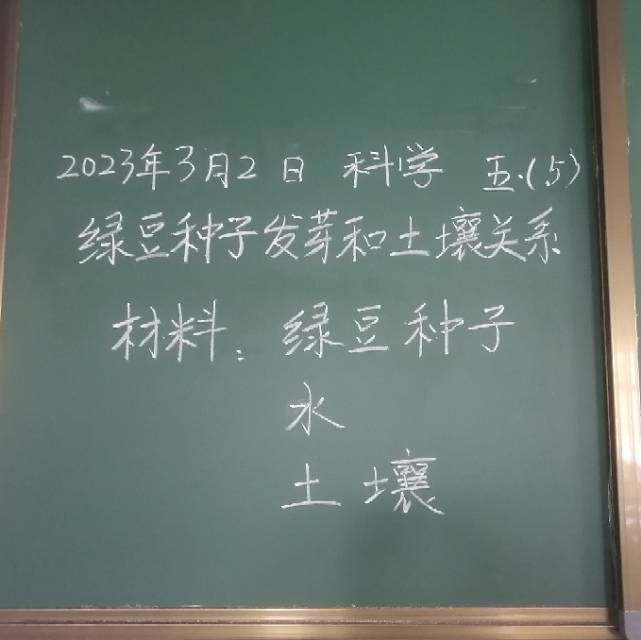 2023年3月2日 科学 五.(5)
绿豆种子发芽和土壤关系
材料: 绿豆种子
水
土壤